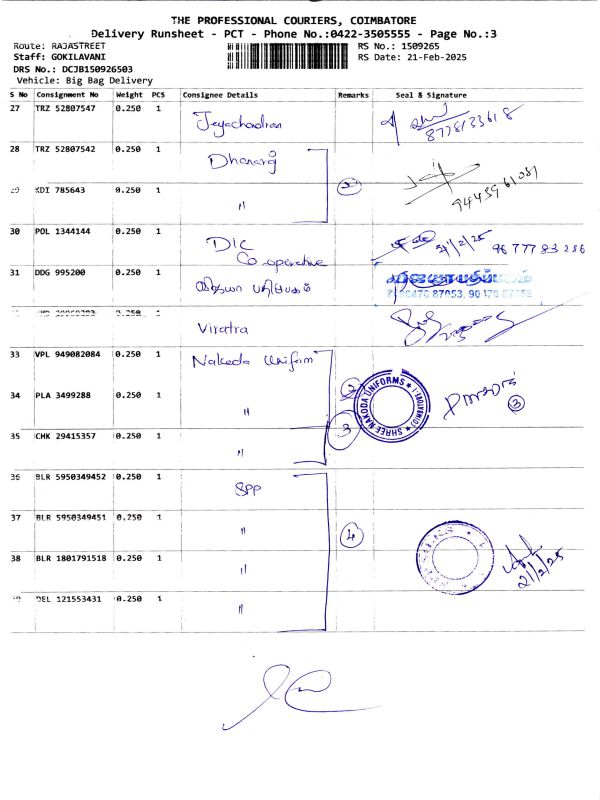 THE PROFESSIONAL COURIERS, COIMBATORE
Delivery Runsheet - PCT - Phone No.:0422-3505555 - Page No.:3
Route: RAJASTREET
RS No.: 1509265
Staff: GOKILAVANI
RS Date: 21-Feb-2025
DRS No.: DCJB150926503
Vehicle: Big Bag Delivery
S No Consignment No Weight PCS Consignee Details Remarks Seal & Signature
27 TRZ 52807547 0.250 1 Jeyachandran
28 TRZ 52807542 0.250 1 Dhanaraj
29 KDI 785643 0.250 1 "
30 POL 1344144 0.250 1 DIC Co-operative 21/2/25 9677783286
31 DDG 995200 0.250 1 விஜயா பதிப்பகம் விஜயா பதிப்பகம்
90470 87053, 90470 87058
Viratra
33 VPL 949082084 0.250 1 Nakoda Uniform
34 PLA 3499288 0.250 1 " 3 SHREE NAKODA UNIFORMS 3
35 CHK 29415357 0.250 1 "
36 BLR 5950349452 0.250 1 SPP
37 BLR 5950349451 0.250 1 " 4
38 BLR 1801791518 0.250 1 " 21/2/25
39 DEL 121553431 0.250 1 "